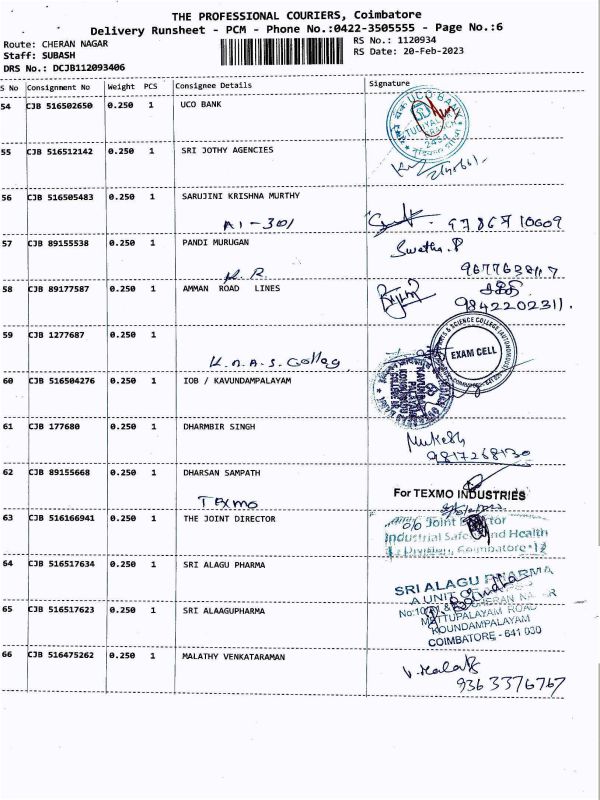 THE PROFESSIONAL COURIERS, Coimbatore
Delivery Runsheet - PCM - Phone No.:0422-3505555 - Page No.:6
Route: CHERAN NAGAR
RS No.: 1120934
Staff: SUBASH
RS Date: 20-Feb-2023
DRS No.: DCJB112093406
S No Consignment No Weight PCS Consignee Details Signature
54 CJB 516502650 0.250 1 UCO BANK
UCO BANK
2494
55 CJB 516512142 0.250 1 SRI JOTHY AGENCIES
56 CJB 516505483 0.250 1 SARUJINI KRISHNA MURTHY
A1-301
57 CJB 89155538 0.250 1 PANDI MURUGAN
Swetha.P
P.R.
58 CJB 89177587 0.250 1 AMMAN ROAD LINES
சக்தி
9842202311.
59 CJB 1277687 0.250 1
K.n.A.S. Collag
& SCIENCE COLLEGE (AUTONOMOUS)
EXAM CELL
60 CJB 516504276 0.250 1 IOB / KAVUNDAMPALAYAM
61 CJB 177680 0.250 1 DHARMBIR SINGH
Mukesh
9817268130
62 CJB 89155668 0.250 1 DHARSAN SAMPATH
TEXMO
For TEXMO INDUSTRIES
63 CJB 516166941 0.250 1 THE JOINT DIRECTOR
O/o Joint Director
Industrial Safety and Health
Division, Coimbatore-12
64 CJB 516517634 0.250 1 SRI ALAGU PHARMA
SRI ALAGU PHARMA
A UNIT OF
65 CJB 516517623 0.250 1 SRI ALAAGUPHARMA
CHERAN NAGAR
METTUPALAYAM ROAD
KOUNDAMPALAYAM
COIMBATORE - 641 030
66 CJB 516475262 0.250 1 MALATHY VENKATARAMAN
V. Malathi
9363376767